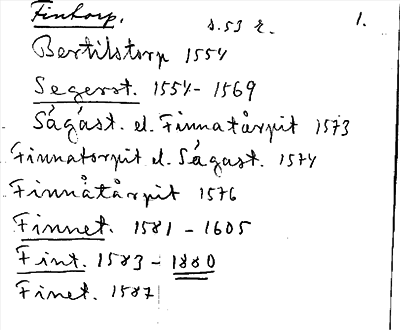 Fintorp. s. 53 r. 1.
Bertilstorp 1554
Segerst. 1554 - 1569
Ságást. el. Finnatårpit 1573
Finnatorpit el. Ságast. 1574
Finnåtårpit 1576
Finnet. 1581 - 1605
Fint. 1583 - 1880
Finet. 1587